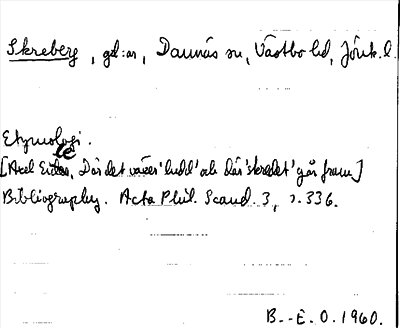 Skreberg, gd:ar, Daunäs sn, Västbo hd, Jönk. l.
Etymologi.
[Axel Eides, Där det växer 'ludd' och där 'skredet' går fram]
Bibliography. Acta Phil. Scand. 3, s. 336.
B.-E.O. 1960.